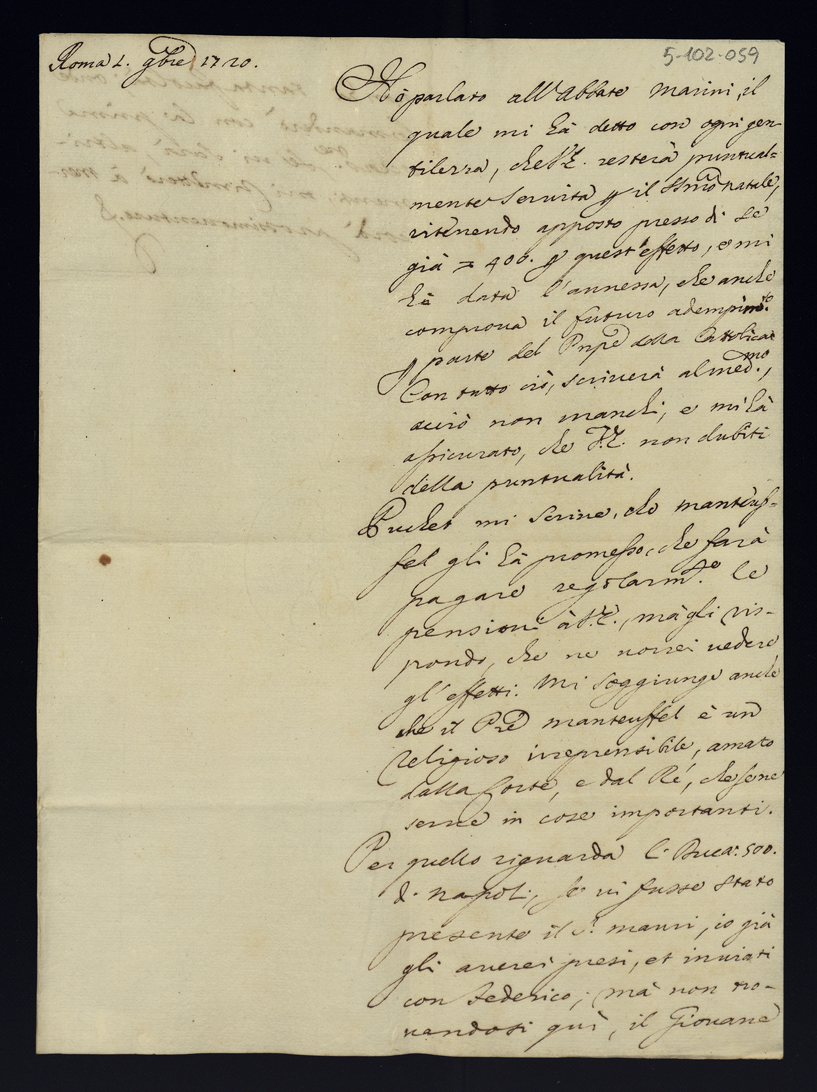 5-102-059
Roma 2. 9bre 1720.
Hò parlato all'Abbate Marini, il
quale mi hà detto con ogni gen-
tilezza, che V.E. resterà puntual=
mente servita p il SSmo Natale,
ritenendo apposto presso di se
già 400. p quest'effetto, e mi
hà data l'annessa, che anche
comprova il futuro adempimto.
p parte del Pnpe della Cattolica
Con tutto ciò, scriverà al medmo.,
acciò non manchi, e mi hà
assicurato, che V.E. non dubiti
della puntualità.
Pucket mi scrive, che Manteuf-
fel gli hà promesso, che farà
pagare regolarmte. le
pensioni à V.E., mà gli ris-
pondo, che ne vorrei vedere
gl'effetti. Mi soggiunge anche
che il Pre Manteuffel è un
religioso irreprensibile, amato
dalla Corte, e dal Ré, che sene
serve in cose importanti.
Per quello riguarda li Ducat. 500.
di Napoli, se vi fusse stato
presente il Sr. Mauri, io già
gli averei presi, et inviati
con Federico; mà non tro-
vandosi quì, il Giovane